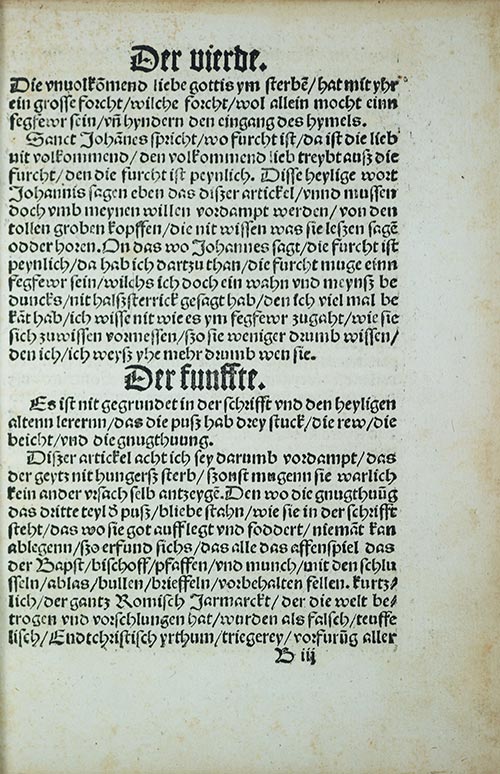 Der vierde.
Die vnuolkõmend liebe gottis ym sterbẽ/ hat mit yhr
ein grosse forcht/ wilche forcht/ wol allein mocht einn
fegfewr sein/ vñ hyndern den eingang des hymels.
Sanct Johãnes spricht/ wo furcht ist/ da ist die lieb
nit volkommend/ den volkommend lieb treybt auß die
furcht/ den die furcht ist peynlich. Disse heylige wort
Johannis sagen eben das dißer artickel/ vnnd mussen
doch vmb meynen willen vordampt werden/ von den
tollen groben kopffen/ die nit wissen was sie leßen sagẽ
odder horen. On das wo Johannes sagt/ die furcht ist
peynlich/ da hab ich dartzu than/ die furcht muge einn
fegfewr sein/ wilchs ich doch ein wahn vnd meynß be
duncks/ nit halßsterrick gesagt hab/ den ich viel mal be
kãt hab/ ich wisse nit wie es ym fegfewr zugaht/ wie sie
sich zuwissen vormessen/ ßo sie weniger drumb wissen/
den ich/ ich weyß yhe mehr drumb wen sie.
Der funffte.
Es ist nit gegrundet in der schrifft vnd den heyligen
altenn lerernn/ das die puß hab drey stuck/ die rew/ die
beicht/ vnd die gnugthuung.
Dißer artickel acht ich sey darumb vordampt/ das
der geytz nit hungerß sterb/ ßonst mugenn sie warlich
kein ander vrsach selb antzeygẽ. Den wo die gnugthuũg
das dritte teyl õ puß/ bliebe stahn/ wie sie in der schrifft
steht/ das wo sie got aufflegt vnd foddert/ niemãt kan
ablegenn/ ßo erfund sichs/ das alle das affenspiel das
der Bapst/ bischoff/ pfaffen/ vnd munch/ mit den schlu
sseln/ ablas/ bullen/ brieffeln/ vorbehalten fellen. kurtz/
lich/ der gantz Romisch Jarmarckt/ der die welt be/
trogen vnd vorschlungen hat/ wurden als falsch/ teuffe
lisch/ Endtchristisch yrthum/ triegerey/ vorfurũg aller
B iij